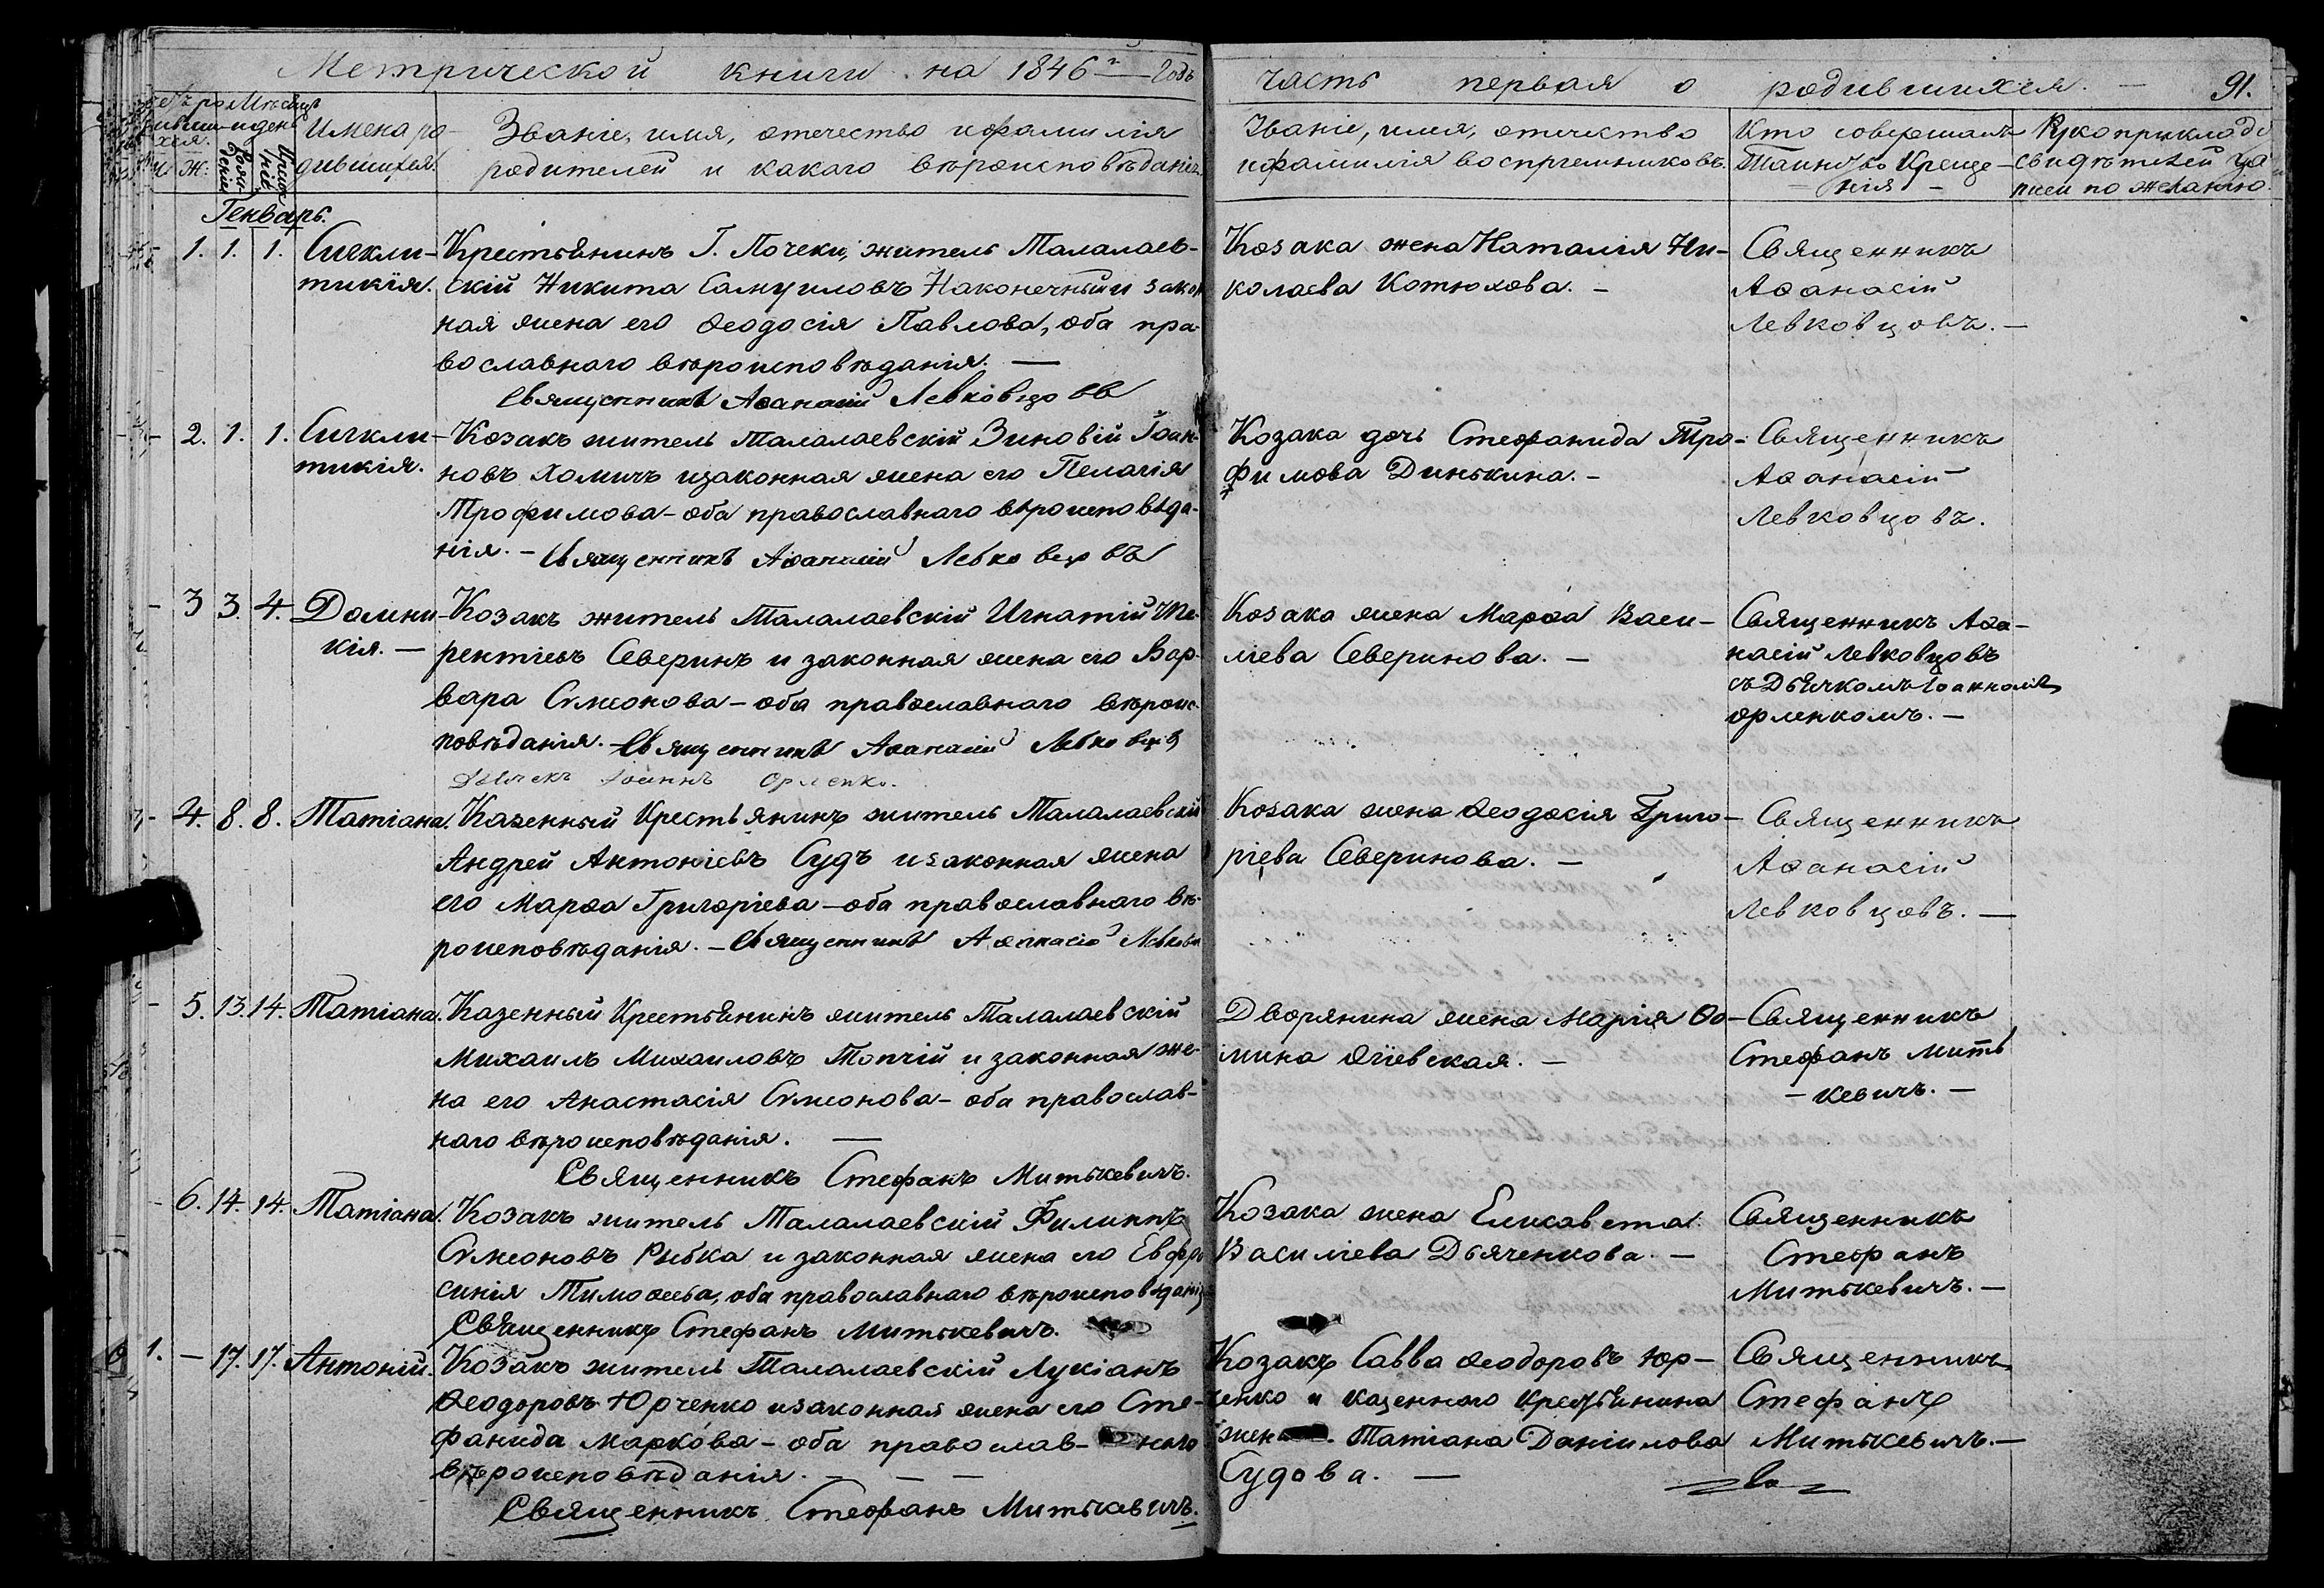 Метрической книги на 1846й годъ
часть первая о родившихся. — 91.
Имена ро-
дившихся.
Званіе, имя, отечество и фамилія
родителей и какаго вѣроисповѣданія.
Званіе, имя, отечество
и фамилія воспріемниковъ.
Кто совершалъ
Таинство Креще-
нія
Рукоприкладс
свидѣтелей за
писи по желанію.
Генварь.
1. 1. 1. Сигкли-
тикія.
Крестьянинъ Г. Почеки, житель Талалаев-
скій Никита Самуиловъ Наконечный и закон
ная жена его Ѳеодосія Павлова, оба пра-
вославнаго вѣроисповѣданія. —
Священникъ Аѳанасій Левковцовъ
Козака жена Наталія Ни-
колаева Котюхова. —
Священникъ
Аѳанасій
Левковцовъ. —
2. 1. 1. Сигкли-
тикія.
Козакъ житель Талалаевскій Зиновій Іоан-
новъ Хомичъ и законная жена его Пелагія
Трофимова — оба православнаго вѣроисповѣда-
нія. — Священникъ Аѳанасій Левковцовъ
Козака дочь Стефанида Тро-
фимова Динькина. —
Священникъ
Аѳанасій
Левковцовъ.
3 3. 4. Домни-
кія. —
Козакъ житель Талалаевскій Игнатій Те-
рентіевъ Северинъ и законная жена его Вар-
вара Симеонова — оба православнаго вѣроис-
повѣданія. — Священникъ Аѳанасій Левковцовъ
Дьячекъ Іоаннъ Орленко.
Козака жена Марѳа Васи-
ліева Северинова. —
Священникъ Аѳа-
насій Левковцовъ
съ Дьячкомъ Іоанномъ
Орленкомъ. —
4. 8. 8. Татіана.
Казенный Крестьянинъ житель Талалаевскій
Андрей Антоніевъ Судъ и законная жена
его Марѳа Григоріева — оба православнаго вѣ-
роисповѣданія. — Священникъ Аѳанасій Левковцовъ
Козака жена Ѳеодосія Григо-
ріева Северинова. —
Священникъ
Аѳанасій
Левковцовъ. —
5. 13. 14. Татіана.
Казенный Крестьянинъ житель Талалаевскій
Михаилъ Михаиловъ Топчій и законная же-
на его Анастасія Симеонова — оба православ-
наго вѣроисповѣданія. —
Священникъ Стефанъ Митькевичъ.
Дворянина жена Марія Ѳо-
мина
Священникъ
Стефанъ Мить
— кевичъ. —
6. 14. 14. Татіана.
Козакъ житель Талалаевскій Филиппъ
Симеоновъ Рыбка и законная жена его Евфро
синія Тимоѳеева, оба православнаго вѣроисповѣданія
Священникъ Стефанъ Митькевичъ.
Козака жена Елисавета
Василіева Дьяченкова. —
Священникъ
Стефанъ
Митькевичъ. —
1. — 17. 17. Антоній.
Козакъ житель Талалаевскій Лукіанъ
Ѳеодоровъ Юрченко и законная жена его Сте-
фанида Маркова — оба православ- наго
вѣроисповѣданія. — — —
Священникъ Стефанъ Митькевичъ.
Козакъ Савва Ѳеодоровъ Юр-
ченко и казеннаго крестьянина
жена Татіана Даніилова
Судова. —
Священникъ
Стефанъ
Митькевичъ. —